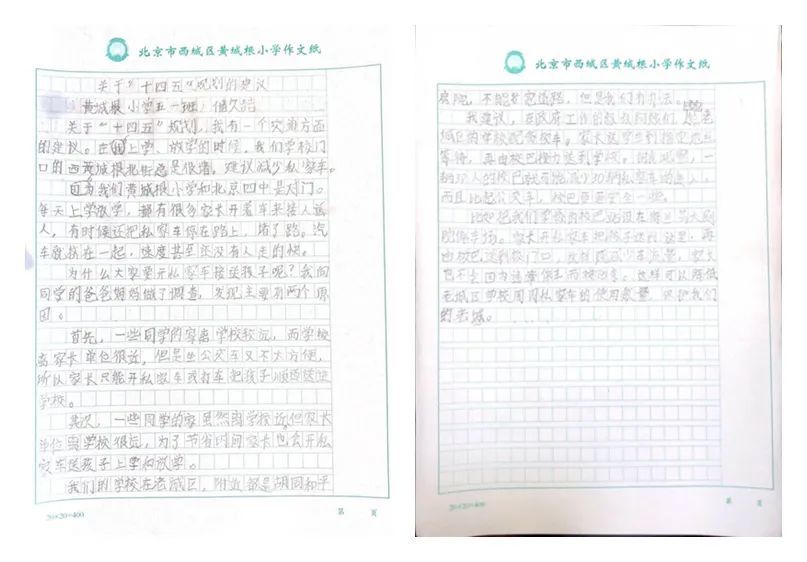 北京市西城区黄城根小学作文纸
关于“十四五”规划的建议
黄城根小学五一班
关于“十四五”规划，我有一个交通方面
的建议。在上学、放学的时候，我们学校门
口的西黄城根北街总是很堵。建议减少私家车。
因为我们黄城根小学和北京四中是对门。
每天上学放学，都有很多家长开着车来接人送
人，有时候还把私家车停在路上，堵了路。汽
车拥挤在一起，速度甚至还没有人走的快。
为什么大家要开私家车接送孩子呢？我向
同学的爸爸妈妈做了调查，发现主要有两个原
因。
首先，一些同学的家离学校较远，而学校
离家长单位很近，但是坐公交车又不太方便，
所以家长只能开私家车或打车把孩子顺路送进
学校。
其次，一些同学的家虽然离学校近，但家长
单位离学校很远，为了节省时间家长也会开私
家车送孩子上学和放学。
我们的学校在老城区，附近都是胡同和平
20×20=400
第 页
北京市西城区黄城根小学作文纸
房院，不能扩宽道路，但是我们有办法。
我建议，在政府工作的叔叔阿姨们，给老
城区的学校配备校车。家长送学生到指定地点
等待，再由校巴接力送到学校。一
辆的校巴就可能减少30辆私家车的出入，
而且比起公交车，校巴更安全一些。
比如把我们学校的校巴站设在大剧
院停车场。家长开私家车把孩子送到这里，再
由校巴送到校门口，这样既减少车流量，家长
也不会因为违章停车而被罚。这样可以降低
老城区学校周围私家车的使用数量，保护我们
的老城。
20×20=400
第 页